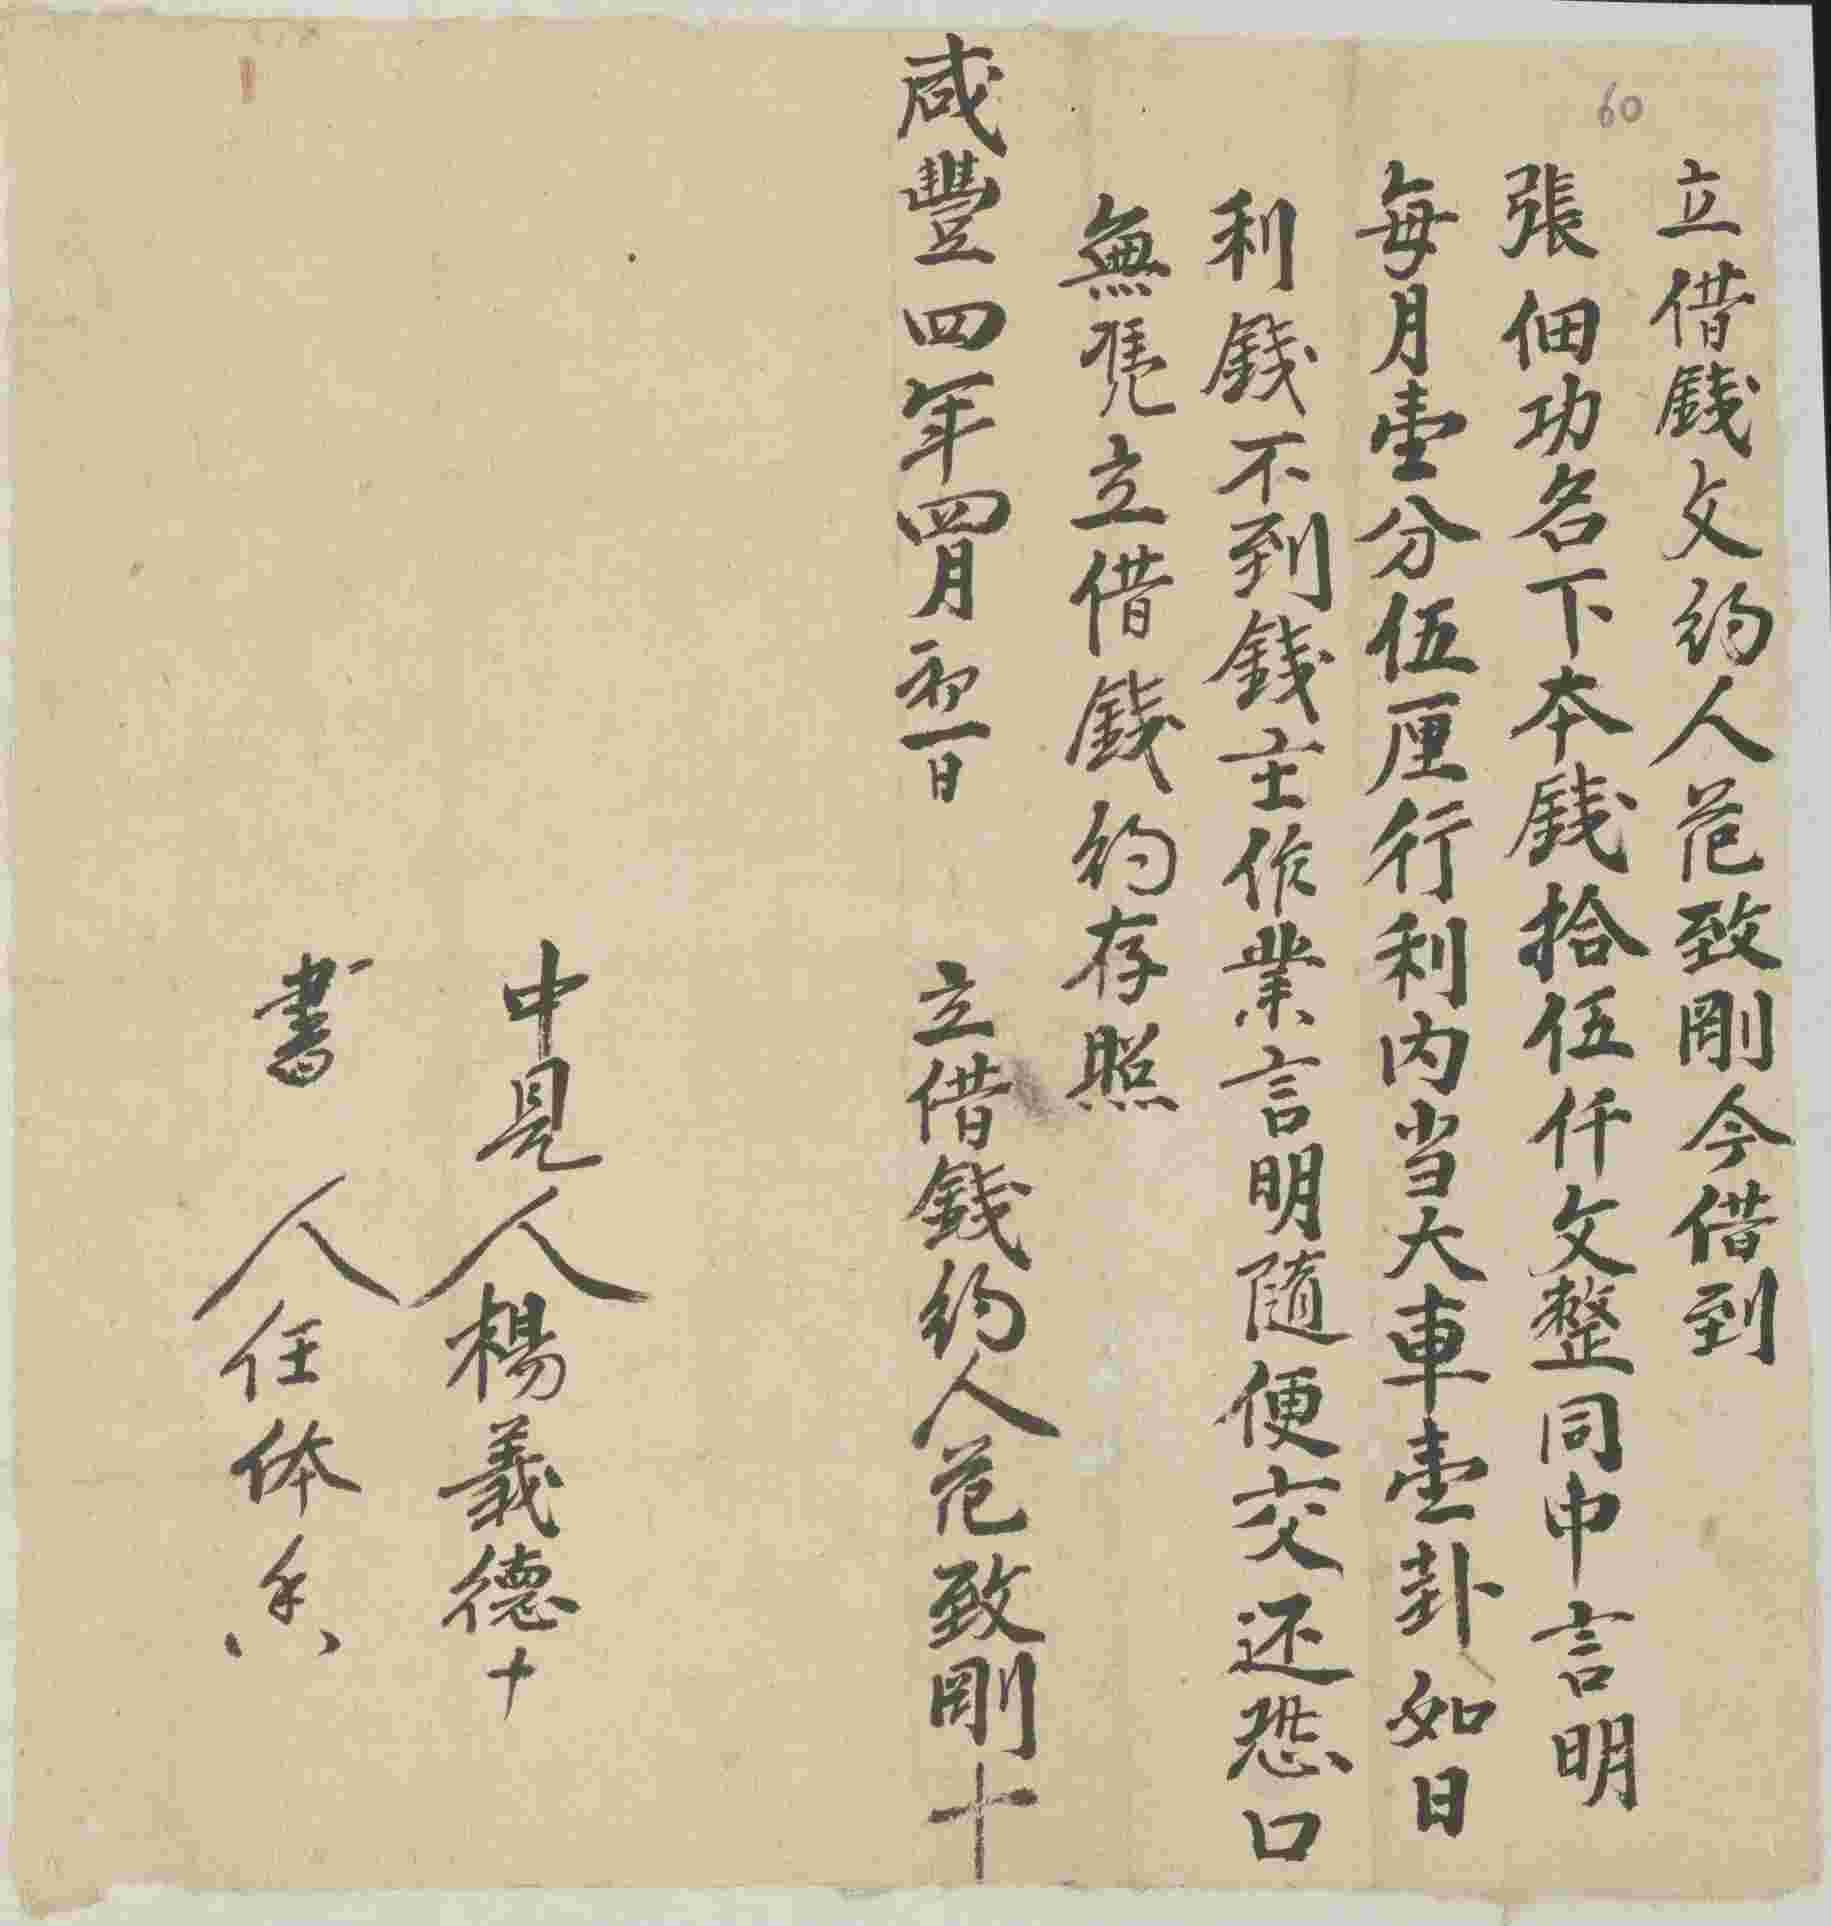 60
立借錢文約人范致剛今借到
張佃功名下本錢拾伍仟文整同中言明
每月壹分伍厘行利内当大車壹卦如日
利錢不到錢主作業言明隨便交还恐口
無凴立借錢約存照
咸豐四年四月初一日 立借錢約人范致剛十
中見人楊義德十
書人任体